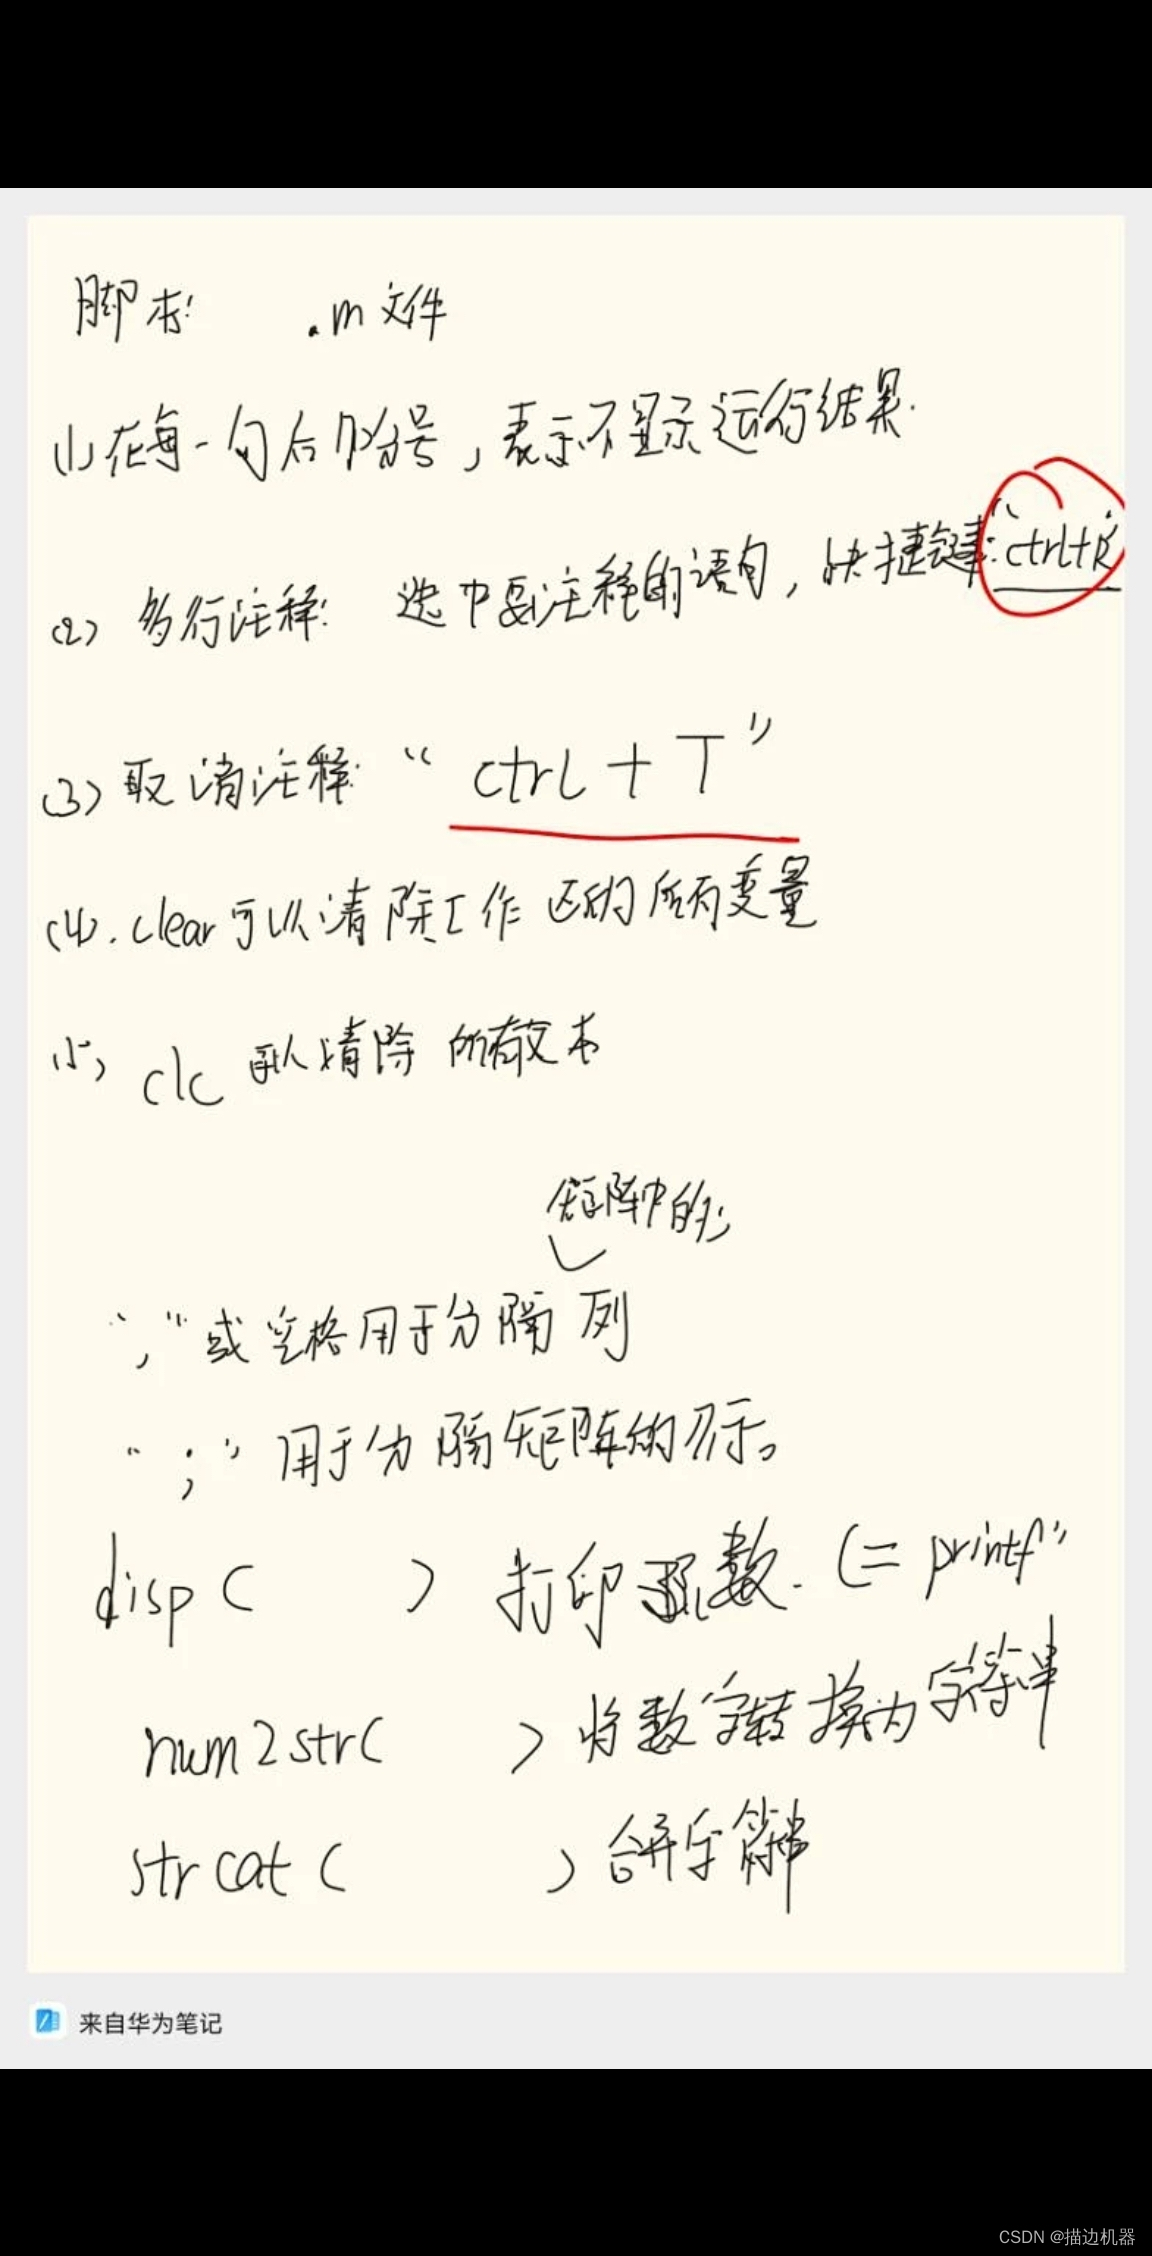 脚本: .m文件
(1) 在每一句后加分号，表示不显示运行结果.
(2) 多行注释: 选中要注释的语句，快捷键:"ctrl+R"
(3) 取消注释: "ctrl+T"
(4). clear可以清除工作区的所有变量
(5) clc 可以清除所有文本
矩阵中的
"，"或空格用于分隔列
"；"用于分隔矩阵的行。
disp( ) 打印函数. (= printf"
num2str( ) 将数字转换为字符串
strcat( ) 合并字符串
来自华为笔记
CSDN @描边机器